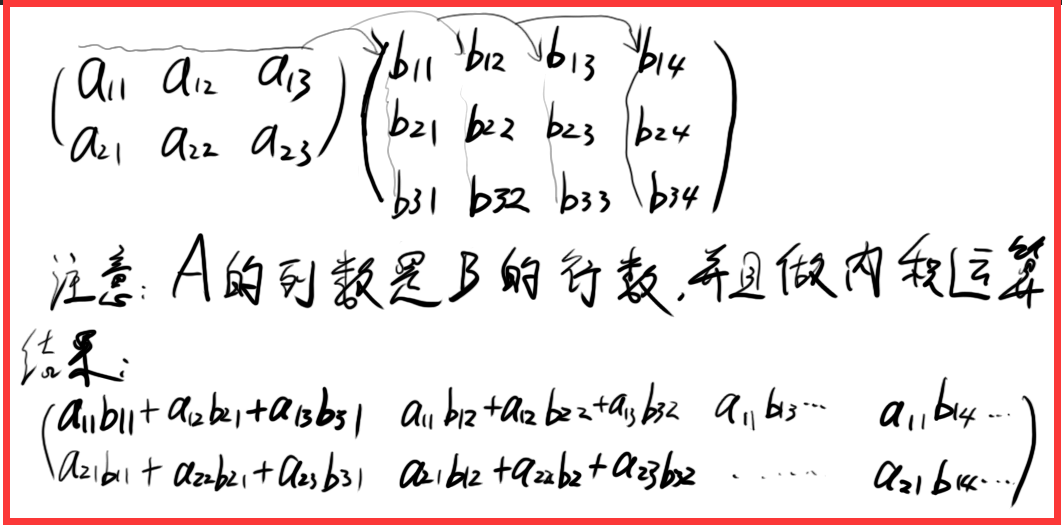 a11 a12 a13 b11 b12 b13 b14
a21 a22 a23 b21 b22 b23 b24
b31 b32 b33 b34
注意: A的列数是B的行数,并且做内积运算
结果:
a11b11+a12b21+a13b31 a11b12+a12b22+a13b32 a11b13… a11b14…
a21b11+a22b21+a23b31 a21b12+a22b2+a23b32 …… a21b14…